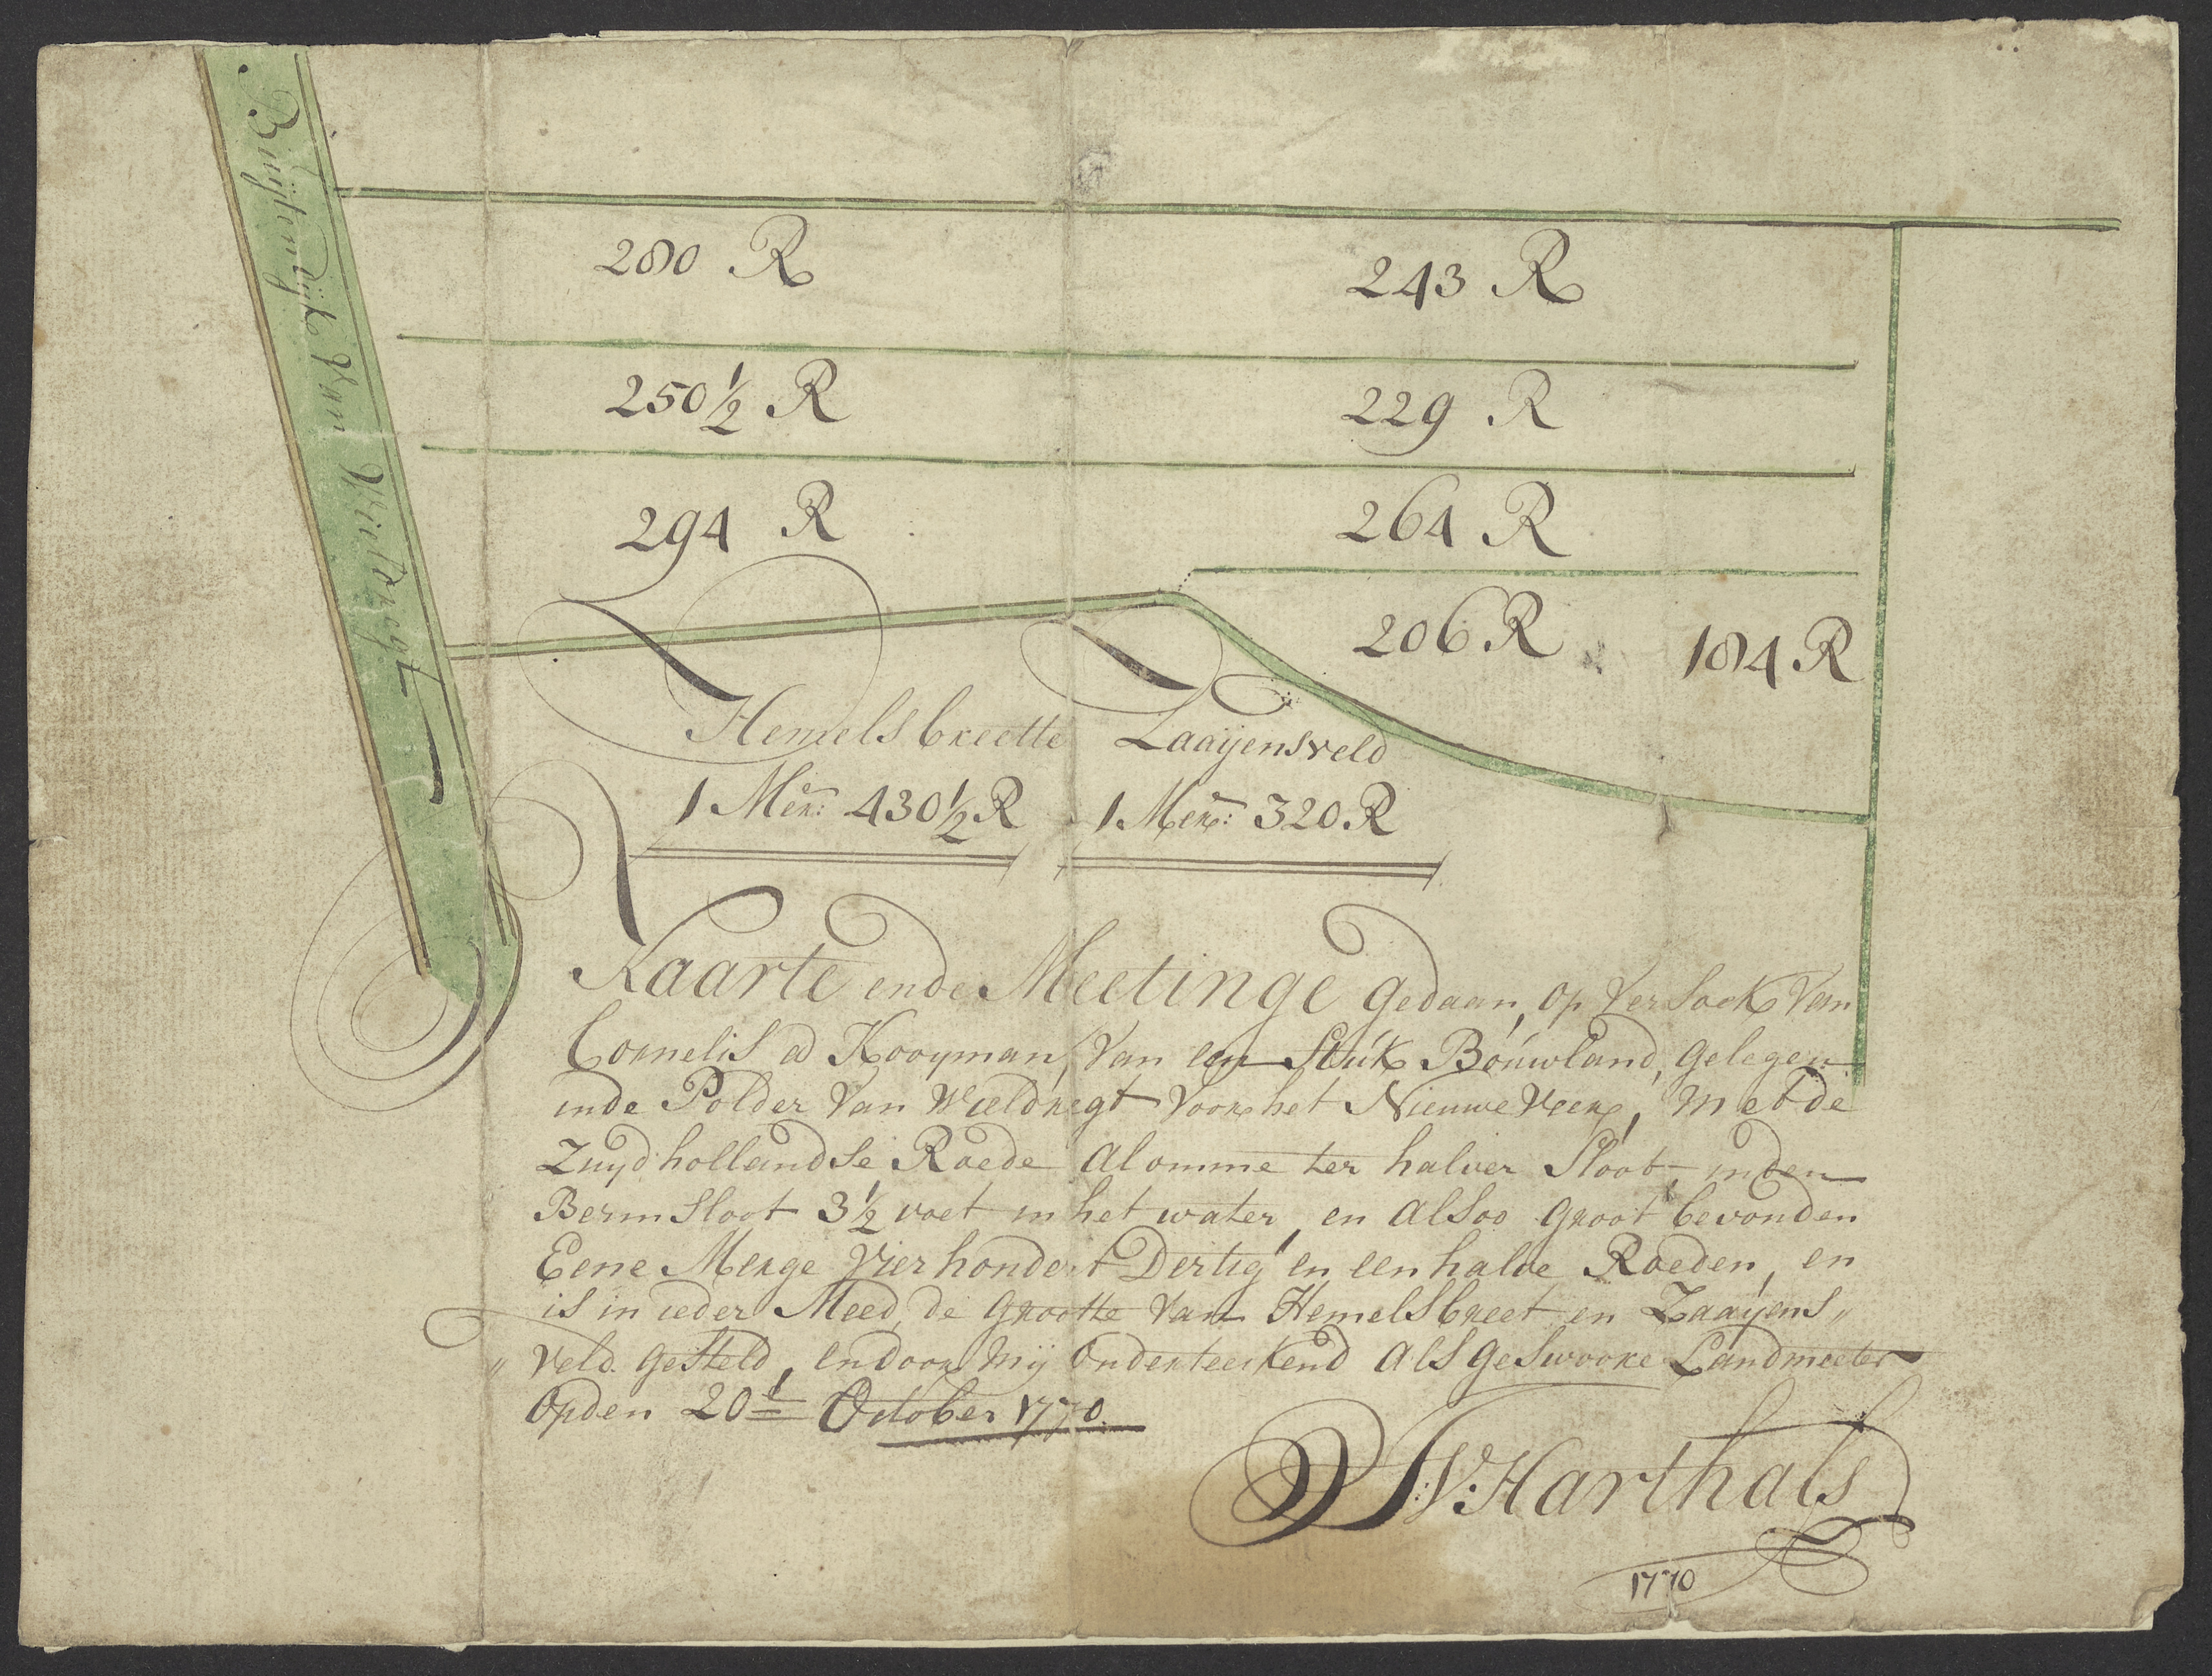 Buijtendijk Van Wieldregt
280 R 243 R
250½ R 229 R
294 R 264 R
206 R 184 R
Hemelsbreette Zaaijensveld
1 Mer: 430½ R 1 Mer: 320 R
Kaarte ende Meetinge gedaan, op Versoek Van
Cornelis Kooyman, Van een Stuk Bouwland, gelegen
inde Polder Van Wieldregt Voor het Nieuwe Veer, met de
Zuyd hollandse Roede alomme ter halver Sloot, inden
Berm Sloot 3½ voet in het water, en alsoo groot bevonden
Eene Merge Vier hondert Dertig en een halve Roeden, en
is in ieder Meed, de grootte van Hemelsbreet en Zaaijens〃
〃 veld gesteld, en door mij onderteekend als geswoore Landmeeter
Opden 20e October 1770.
V: Harthals
1770